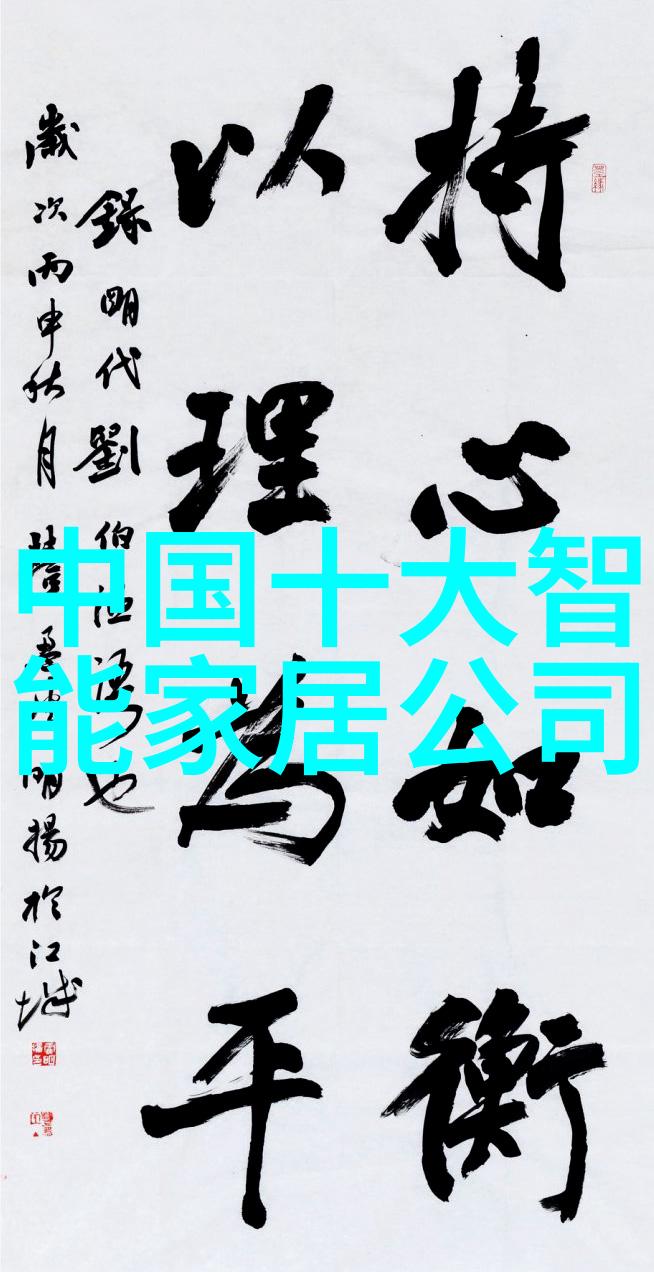 持心如衡
以理为平
錄明代劉伯温語也
歲次丙申秋月
明揚於江城
中国十大智
能家居公司